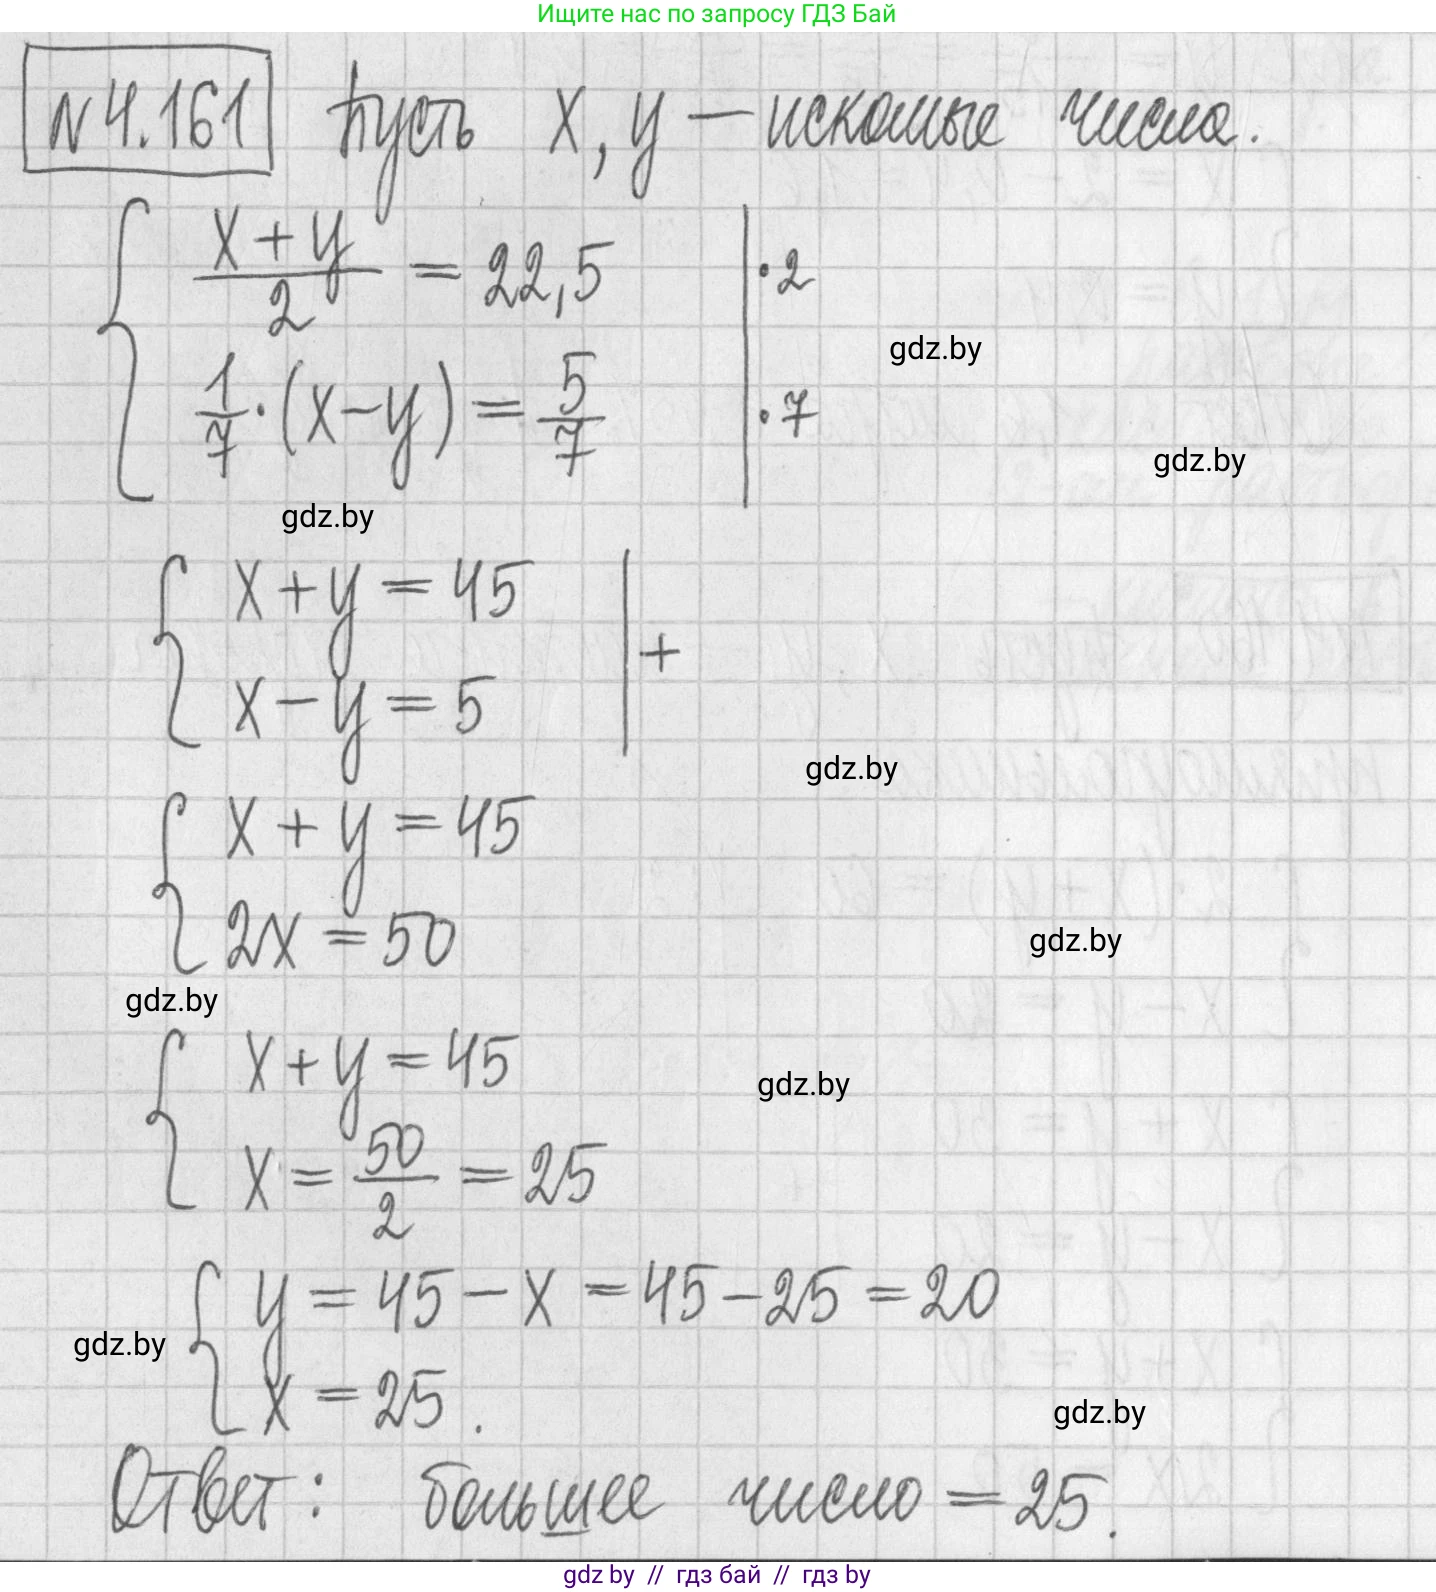 Ищите нас по запросу ГДЗ Бай
N 4.161 Пусть x, y — искомые числа.
{ (x + y)/2 = 22,5 | · 2
gdz.by
{ 1/7 · (x − y) = 5/7 | · 7
gdz.by
gdz.by
{ x + y = 45 | +
{ x − y = 5
gdz.by
{ x + y = 45
{ 2x = 50
gdz.by
gdz.by
{ x + y = 45
gdz.by
{ x = 50/2 = 25
{ y = 45 − x = 45 − 25 = 20
gdz.by
{ x = 25.
gdz.by
Ответ: большее число = 25.
gdz by // гдз бай // гдз by